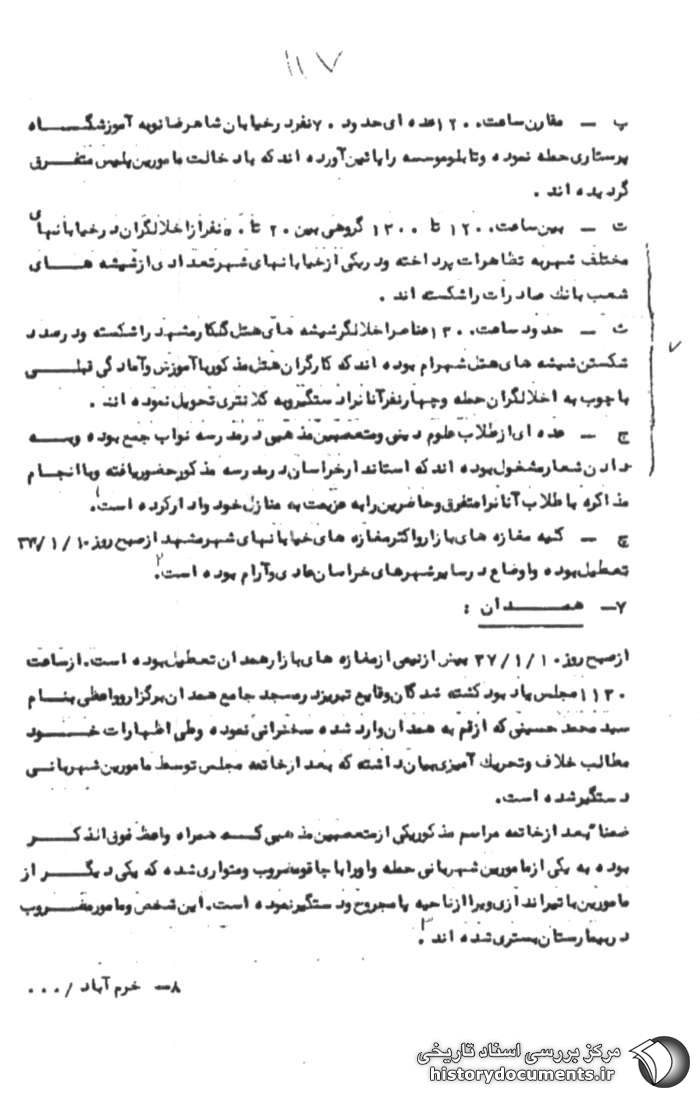 ۱۱۷
پ – مقارن ساعت ۱۲۰۰ عده ای حدود ۷۰ نفر در خیابان شاهرضا نو به آموزشگاه
پرستاری حمله نموده و تابلو موسسه را پائین آورده اند که با دخالت مامورین پلیس متفرق
گردیده اند .
ت – بین ساعت ۱۲۰۰ تا ۱۳۰۰ گروهی بین ۲۰ تا ۵۰ نفر از اخلالگران در خیابانهای
مختلف شهر به تظاهرات پرداخته و در یکی از خیابانهای شهر تعدادی از شیشه های
شعب بانک صادرات را شکسته اند .
ث – حدود ساعت ۱۳۰۰ عناصر اخلالگر شیشه های هتل گلکار مشهد را شکسته و در صدد
شکستن شیشه های هتل شهرام بوده اند که کارگران هتل مذکور با آموزش و آمادگی قبلی
با چوب به اخلالگران حمله و چهار نفر آنانرا دستگیر و به کلانتری تحویل نموده اند .
ج – عده ای از طلاب علوم دینی و متعصبین مذهبی در مدرسه نواب جمع بوده و به
دادن شعار مشغول بوده اند که استاندار خراسان در مدرسه مذکور حضور یافته و با انجام
مذاکره با طلاب آنانرا متفرق و حاضرین را به عزیمت به منازل خود وادار کرده است.۱
چ – کلیه مغازه های بازار و اکثر مغازه های خیابانهای شهر مشهد از صبح روز ۳۷/۱/۱۰
تعطیل بوده و اوضاع در سایر شهرهای خراسان عادی و آرام بوده است.۲
۷– همدان :
از صبح روز ۳۷/۱/۱۰ بیش از نیمی از مغازه های بازار همدان تعطیل بوده است. از ساعت
۱۱۳۰ مجلس یاد بود کشته شدگان وقایع تبریز در مسجد جامع همدان برگزار و واعظی بنام
سید محمد حسینی که از قم به همدان وارد شده سخنرانی نموده و طی اظهارات خود
مطالب خلاف و تحریک آمیزی بیان داشته که بعد از خاتمه مجلس توسط مامورین شهربانی
دستگیر شده است.
ضمنا" بعد از خاتمه مراسم مذکور یکی از متعصبین مذهبی که همراه واعظ فوق الذکر
بوده به یکی از مامورین شهربانی حمله و او را با چاقو مضروب و متواری شده که یکی دیگر از
مامورین با تیراندازی ویرا از ناحیه پا مجروح و دستگیر نموده است. این شخص و مامور مضروب
در بیمارستان بستری شده اند .۳
۸– خرم آباد / ۰۰۰
مرکز بررسی اسناد تاریخی
historydocuments.ir